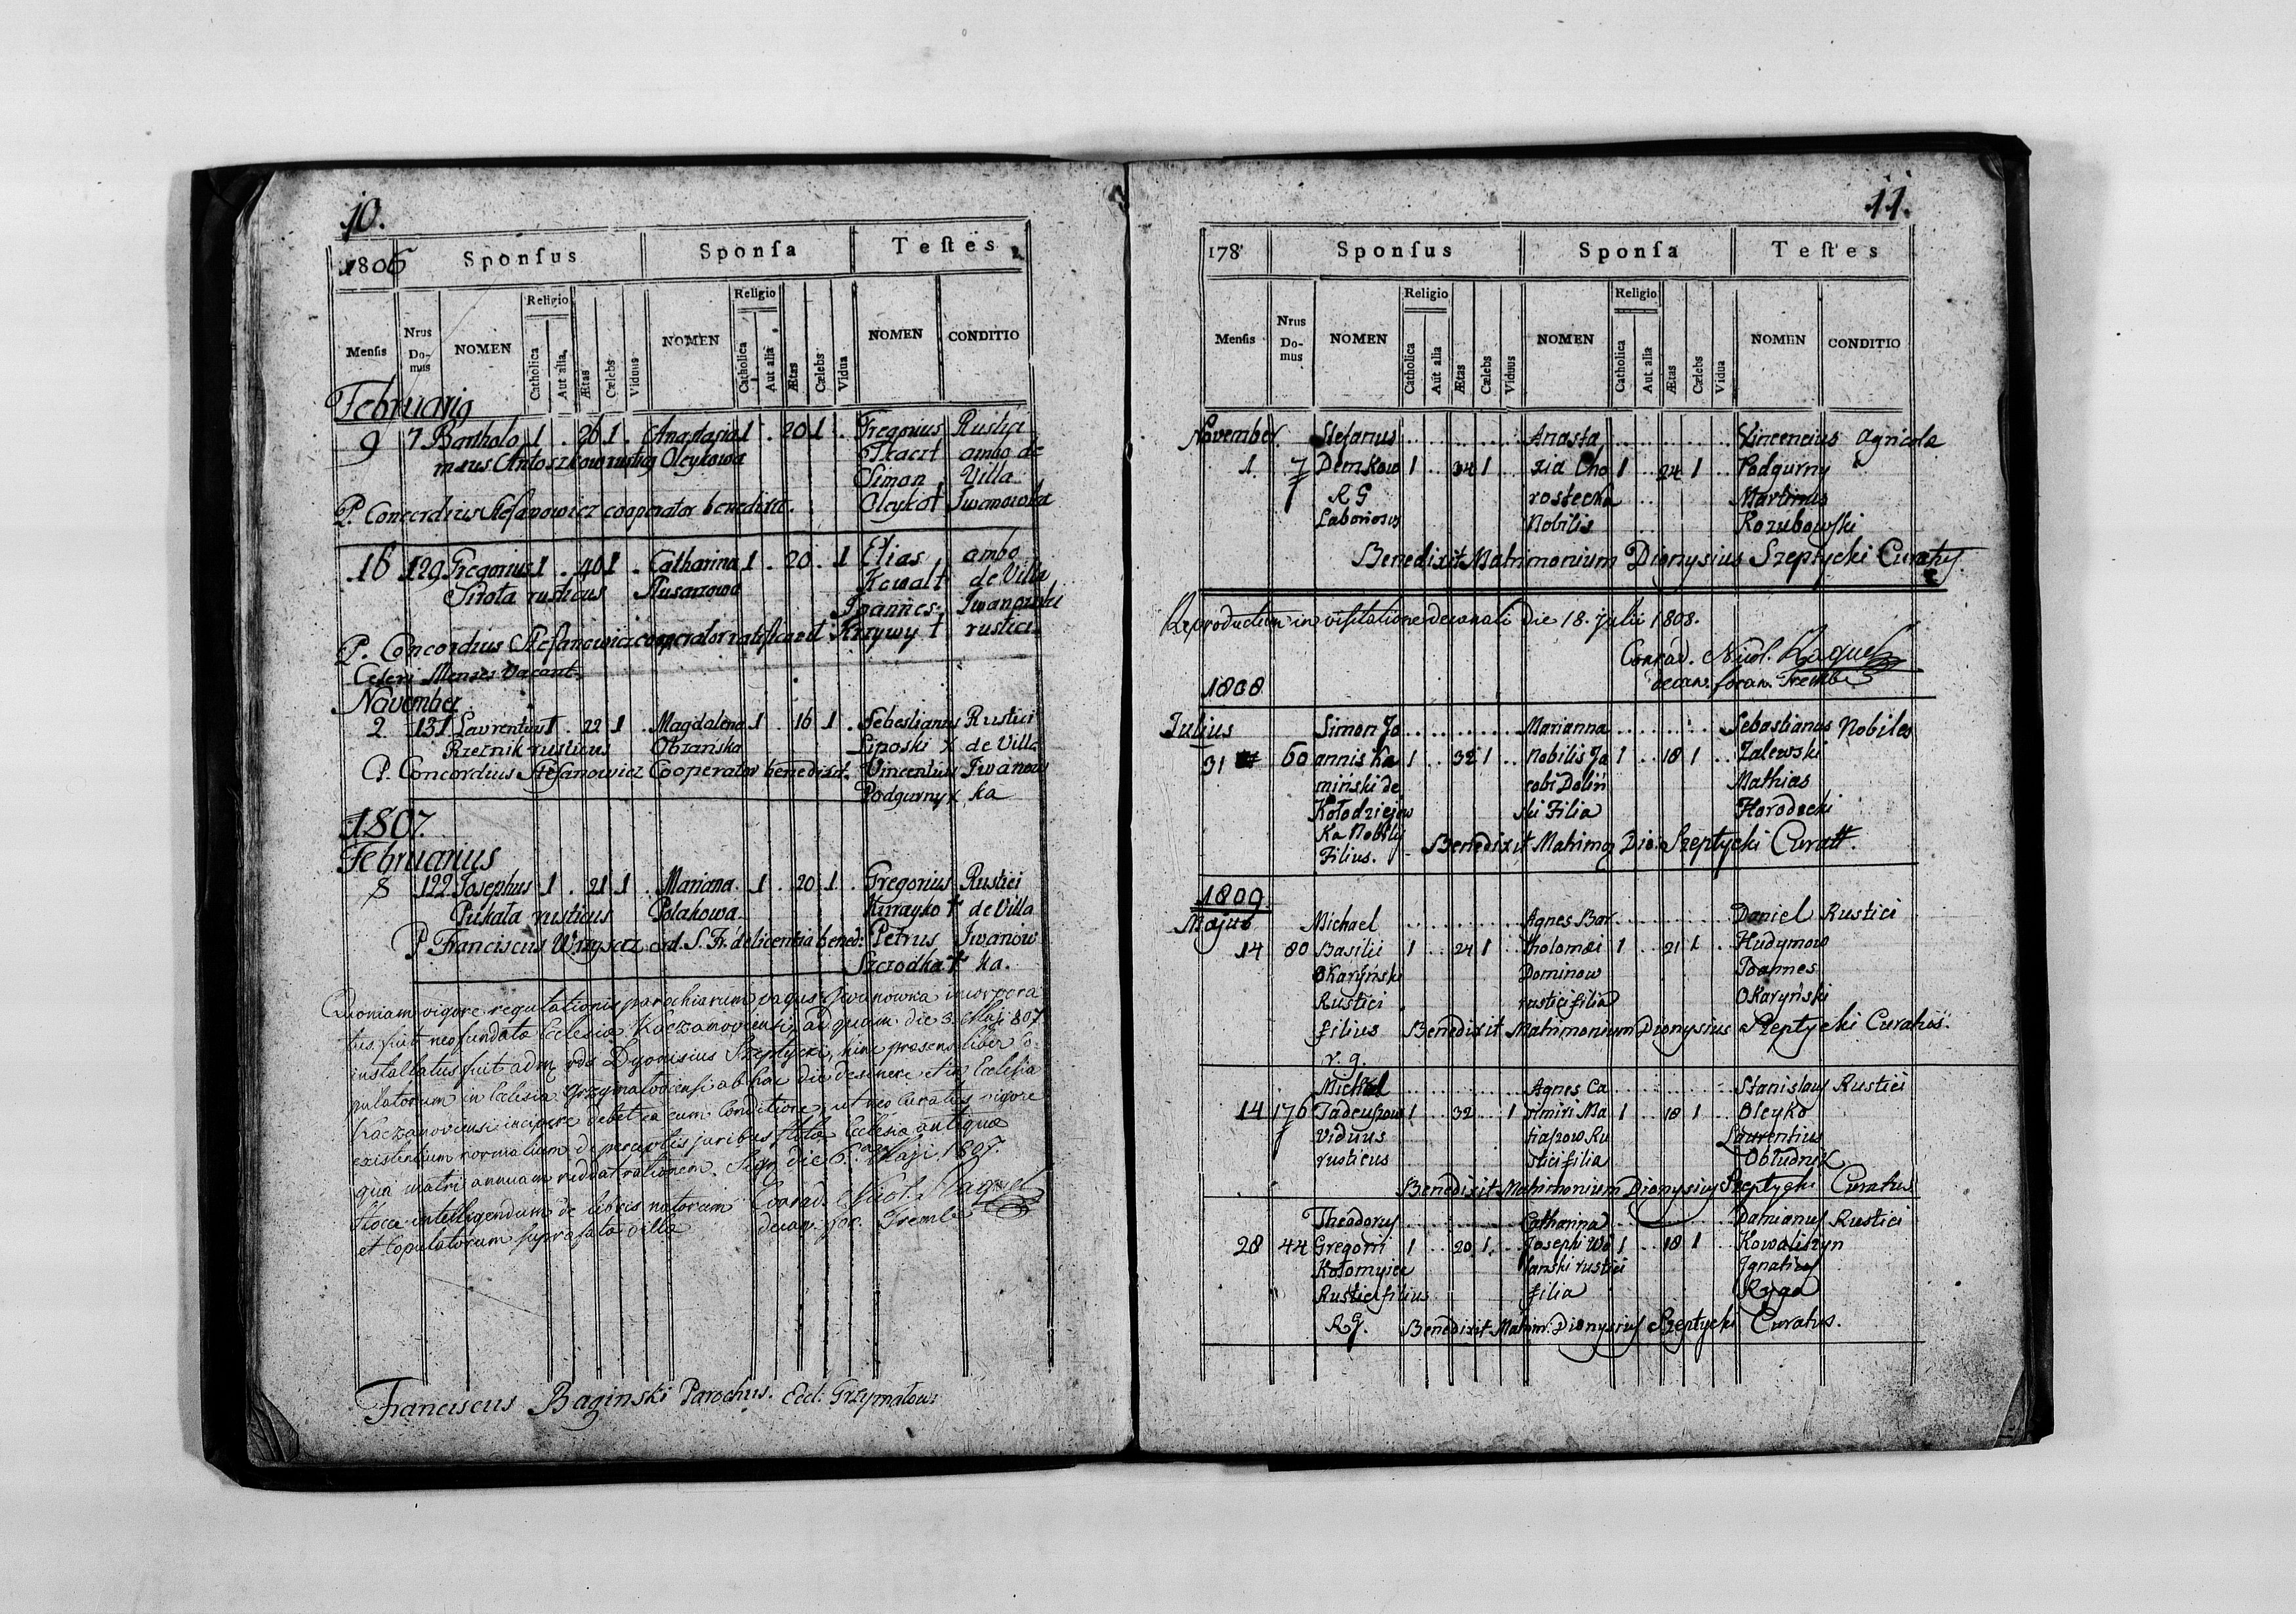 10.
1806 Sponsus Sponsa Testes
Religio Religio
Mensis Nrus Domus NOMEN Catholica Aut alia Ætas Cælebs Viduus NOMEN Catholica Aut alia Ætas Cælebs Vidua NOMEN CONDITIO
Februarig
9 7 Bartholo 1 . 26 1 . Anastasia 1 . 20 1 . Gregorius Rustici
mæus Antoszkow rusticg Oleykowa Tkacz ambo de
Simon Villa
P. Concordius Stefanowicz cooperator benedixit. Oleykot Iwanowka
16 129 Gregorius 1 . 40 1 . Catharina 1 . 20 . 1 Elias ambo
Sirota rusticus Kowalt de Villa
Joannes Iwanowki
P. Concordius Stefanowicz cooperator ratificavit Krzywy t rustici
Ceteri Menses vacant.
November
2 131 Laurentius 1 . 22 1 . Magdalena 1 . 16 1 . Sebestianus Rustici
Rzeźnik rusticus Obzańska Liposki x de Villa
P. Concordius Stefanowicz Cooperator benedixit. Vincentius Iwanow
Podgurny x ka
1807.
Februarius
8 122 Josephus 1 . 21 1 . Mariana 1 . 20 1 . Gregorius Rustici
Pukała rusticus Polakowa de Villa
P. Franciscus ord. S. Fr. de licentia bened: Petrus Iwanow
Szczodka † ka.
Quoniam vigore regulationis parochiarum pagus Iwanowka incorpora
tus fuit neofundatæ Ecclesiæ Kaczanoviensi, ad quam die 3. Maji 807
installatus fuit adm. rds Dyonisius Szeptycki, hinc præsens liber Co-
pulatorum in Eclesia Grzymaloviensi ab hac die desinere et in Ecclesia
Kaczanoviensi incipere debet ea cum Conditione, ut neo Curatus vigore
existentium normalium de perceptis juribus stolæ Eclesiæ antiquæ
qua matri annuam reddat rationem. Sign. die 6. Maji 1807.
Hocce intelligendum de libris natorum Conrad. Nicol. Raquel
et Copulatorum suprafata villa decan. for. Tremb.
Franciscus Baginski Parochus. Eccl. Grzymałow:
11.
178 Sponsus Sponsa Testes
Religio Religio
Mensis Nrus Domus NOMEN Catholica Aut alia Ætas Cælebs Viduus NOMEN Catholica Aut alia Ætas Cælebs Vidua NOMEN CONDITIO
November Stefanus Anasta Vincencius agricola
1 7 Demkow 1 . . 34 1 . . zia Cho 1 . . 24 1 . . Podgurny
R G rostecka Martinus
Laboriosus Nobilis Kozubowski
Benedixit Matrimonium Dionysius Szeptycki Curatus.
Reproductum in visitatione decanali die 18. julii 1808.
Conrad. Nicol. Raquel
decan. foran. Tremb.
1808
Julius Simon Jo Marianna Sebastianus Nobiles
31 60 annis Ka 1 . . 32 1 . . Nobilis Ja 1 . . 18 1 . . Zalewski
miński de cobi Doliń Mathias
Kołodziejow ski Filia Horodecki
ka Nobilis
Filius. Benedixit Matrimo Dio. Szeptycki Curatt.
1809
Majus Michael Agnes Bar Daniel Rustici
14 80 Basilii 1 . . 24 1 . . tholomæi 1 . . 21 1 . . Hudymow
Okaryński Dominow Joannes
Rustici rustici filia Okaryński
filius Benedixit Matrimonium Dionysius Szeptycki Curatus.
r. g.
Michael Agnes Ca Stanislaus Rustici
14 176 Tadeuszow 1 . . 32 . 1 zimiri Ma 1 . . 18 1 . . Oleyko
viduus tiaszow Ru Laurentius
rusticus stici filia Obłudnik
Benedixit Matrimonium Dionysius Szeptycki Curatus
Theodorus Catharina Damianus Rustici
28 44 Gregorii 1 . . 20 1 . . Josephi Wo 1 . . 18 1 . . Kowaliszyn
Kołomyiec lanski rustici Ignatius
Rustici filius filia Ryga
R G. Benedixit Matrim. Dionysius Szeptycki Curatus.